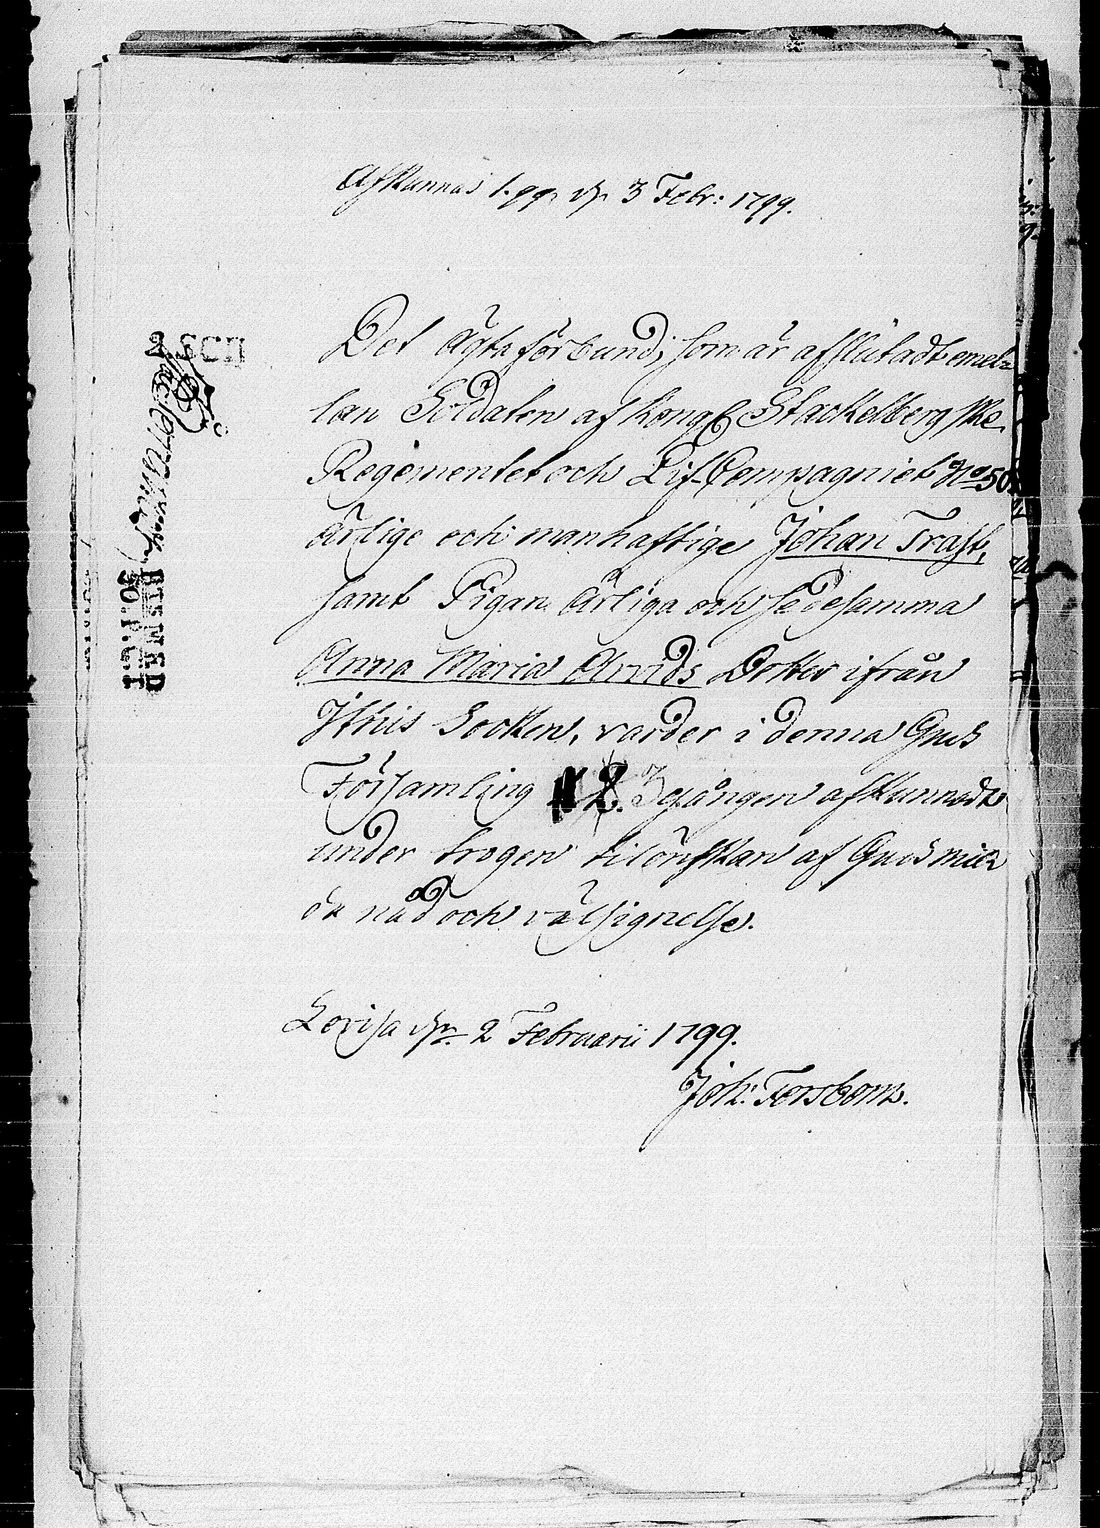 Afkunnas 1. gg. d. 3 Febr: 1799.
Det Ägta förbund, som är afslutadt emel-
lan Soldaten af Kongl Stackelbergske
Regementet och Lif-Compagniet No 50
ärlige och manhaftige Johan Trast,
samt Pigan ärliga och sedesamma
Anna Maria Arvids Dotter ifrån
Ithis Socken, varder i denna Guds
Församling 3 gången afkunnadt
under trogen tilönskan af Guds mil-
da nåd och välsignelse.
Lovisa d. 2 Februarii 1799.
Joh: Forsbom.